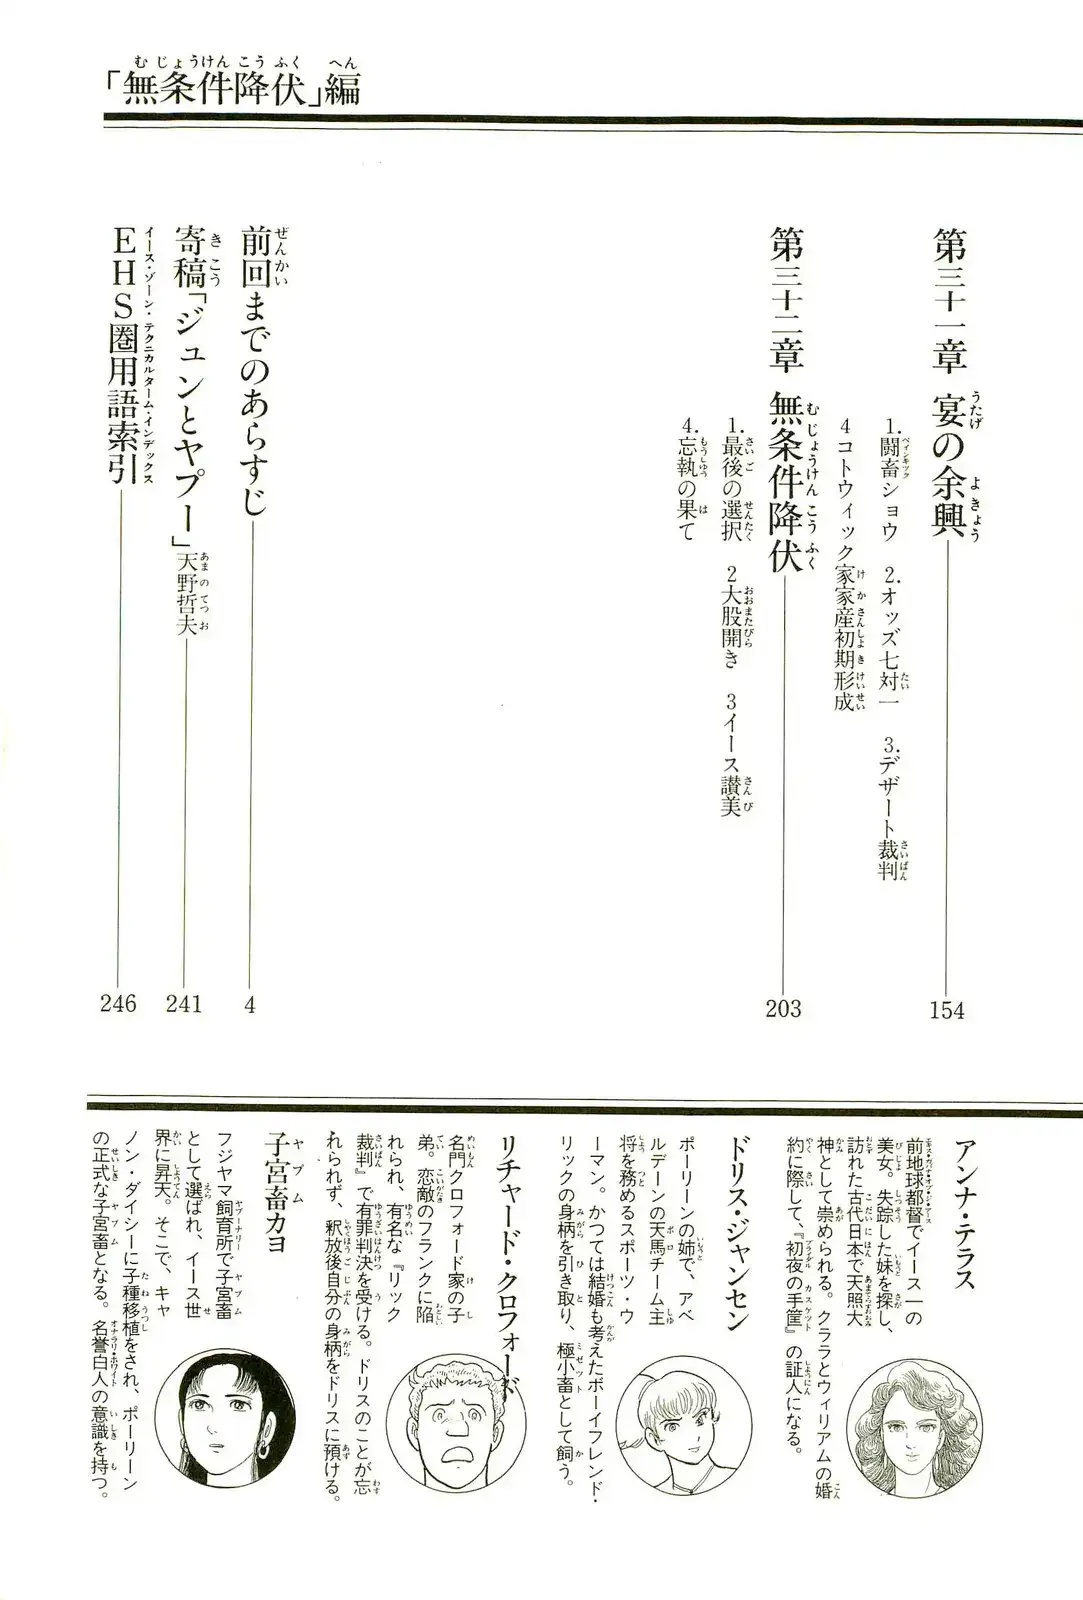 「無条件降伏」編
第三十一章 宴の余興 154
1.闘畜ショウ 2.オッズ七対一 3.デザート裁判
4コトウィック家家産初期形成
第三十二章 無条件降伏 203
1.最後の選択 2大股開き 3イース讃美
4.忘執の果て
前回までのあらすじ 4
寄稿「ジュンとヤプー」天野哲夫 241
EHS圏用語索引 246
アンナ・テラス
前地球都督でイース一の
美女。失踪した妹を探し、
訪れた古代日本で天照大
神として崇められる。クララとウィリアムの婚
約に際して、『初夜の手筐』の証人になる。
ドリス・ジャンセン
ポーリーンの姉で、アベ
ルデーンの天馬チーム主
将を務めるスポーツ・ウ
ーマン。かつては結婚も考えたボーイフレンド・
リックの身柄を引き取り、極小畜として飼う。
リチャード・クロフォード
名門クロフォード家の子
弟。恋敵のフランクに陥
れられ、有名な『リック
裁判』で有罪判決を受ける。ドリスのことが忘
れられず、釈放後自分の身柄をドリスに預ける。
子宮畜カヨ
フジヤマ飼育所で子宮畜
として選ばれ、イース世
界に昇天。そこで、キャ
ノン・ダイシーに子種移植をされ、ポーリーン
の正式な子宮畜となる。名誉白人の意識を持つ。